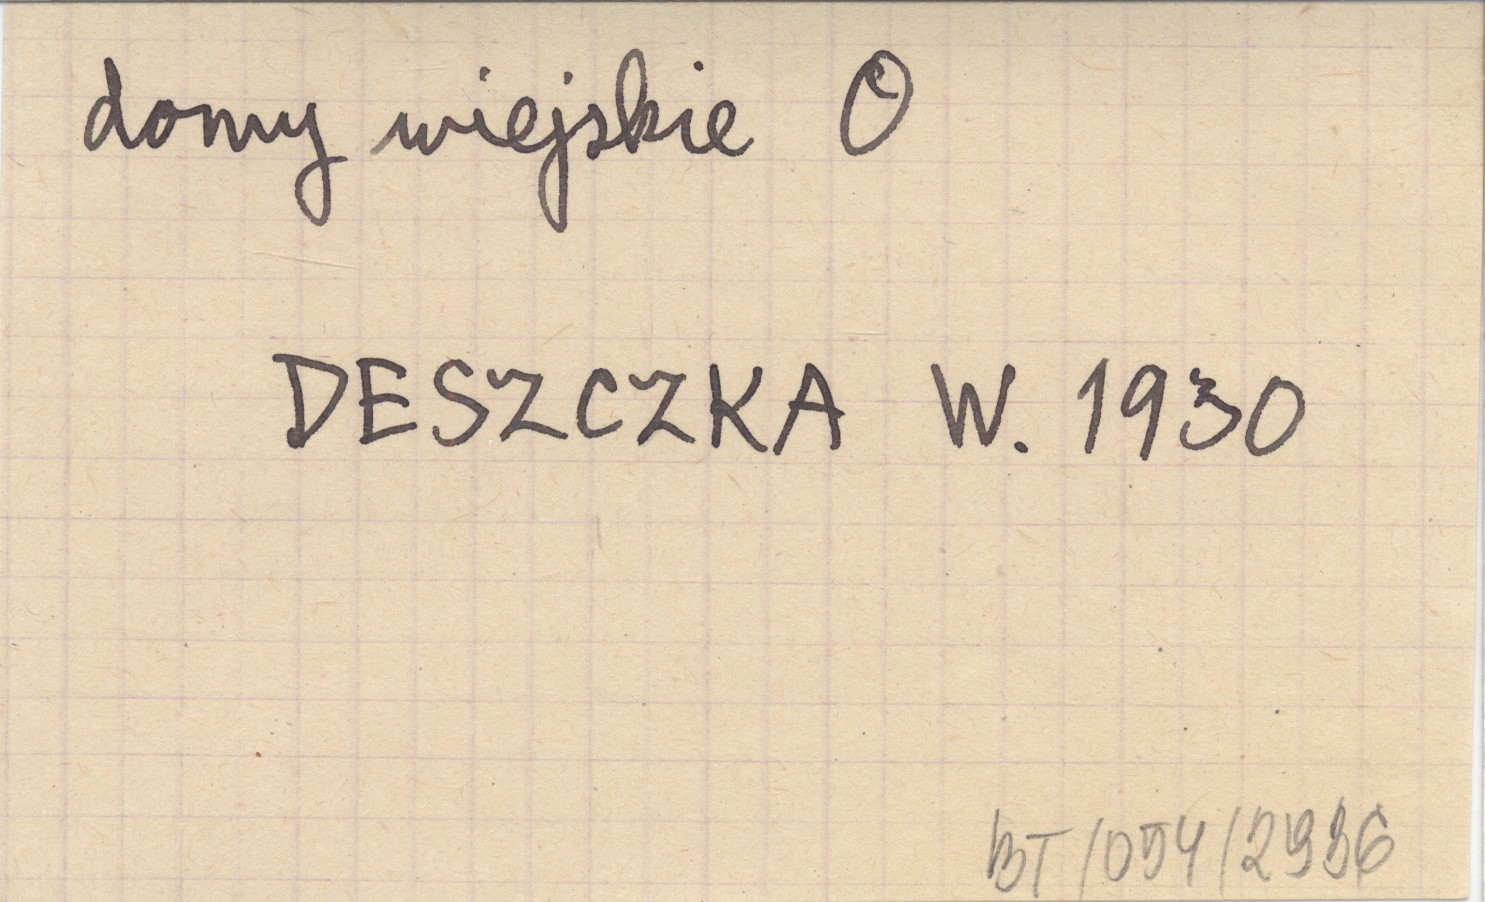 domy wiejskie O
DESZCZKA W. 1930
BT/054/2936